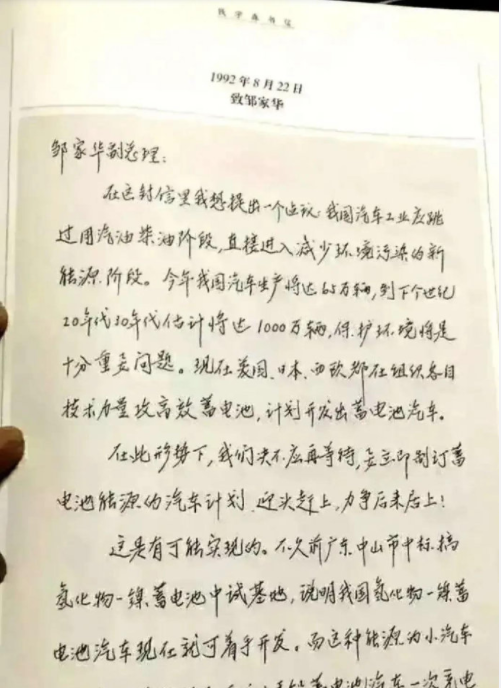 钱学森书信
1992年8月22日
致邹家华
邹家华副总理:
在这封信里我想提出一个建议:我国汽车工业应跳
过用汽油柴油阶段,直接进入减少环境污染的新
能源阶段。今年我国汽车生产将达65万辆,到下个世纪
20年代30年代估计将达1000万辆,保护环境将是
十分重要问题。现在美国、日本、西欧都在组织各自
技术力量攻高效蓄电池,计划开发出蓄电池汽车。
在此形势下,我们决不应再等待,要立即制订蓄
电池能源的汽车计划,迎头赶上,力争后来居上!
这是有可能实现的。不久前广东中山市中标搞
氢化物-镍蓄电池中试基地,说明我国氢化物-镍蓄
电池汽车现在就可着手开发。而这种能源为小汽车
蓄电池汽车一次充电